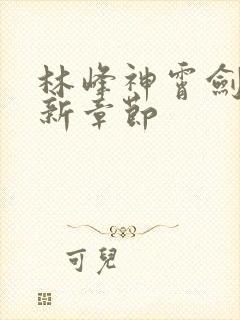 林峰神霄劍
新章節
可兒